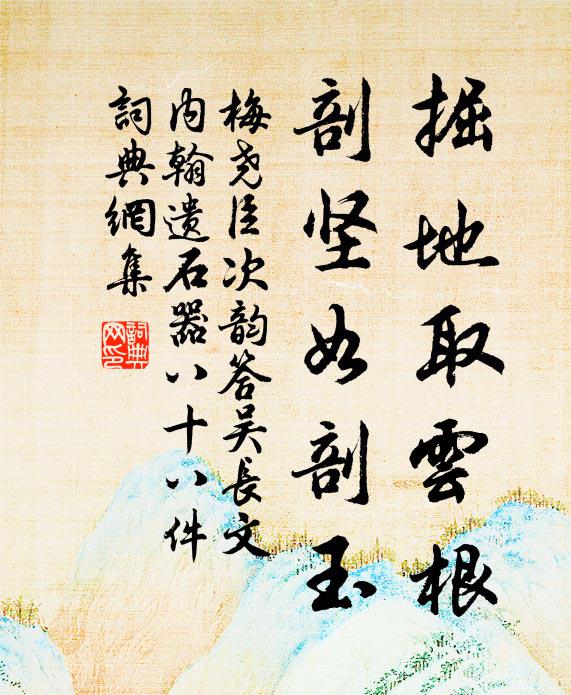 掘地取雲根
剖坚如剖玉
梅尧臣次韵答吴长文
内翰遗石器八十八件
詞典網集
詞典
网印